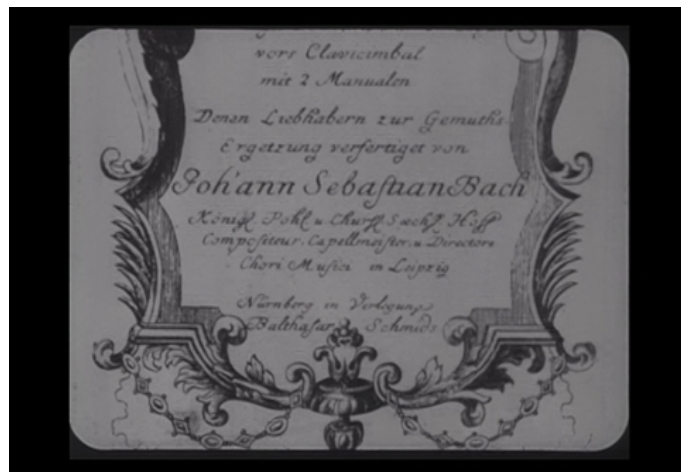 vors Clavicimbal
mit 2 Manualen
Denen Liebhabern zur Gemüths-
Ergetzung verfertiget von
Johann Sebaſtian Bach
Königl. Pohl. u. Churfl. Sæchſ. Hoff
Compositeur, Capellmeister, u. Directore
Chori Musici in Leipzig
Nürnberg in Verlegung
Balthaſar Schmids